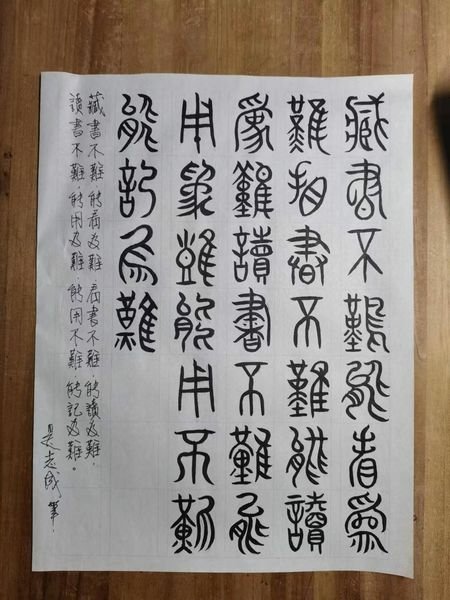 藏書不難能看為
難看書不難能讀
為難讀書不難能
用為難能用不難
能記為難
藏書不難.能看为難 看書不難.能讀为難.
讀書不難.能用为難 能用不難.能記为難。
志成筆.